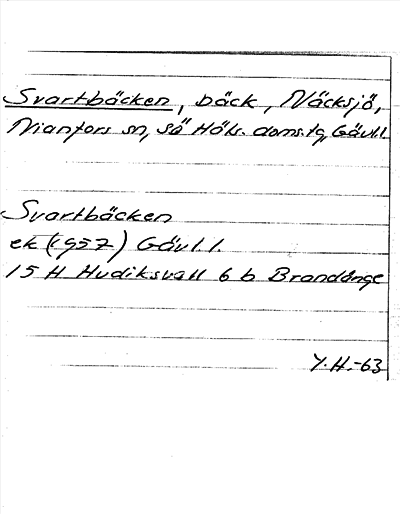 Svartbäcken, bäck, Näcksjö,
Nianfors sn, Sö Häls. doms.lg, Gävl.l
Svartbäcken
ek (1957) Gävl.l.
15 H Hudiksvall 6 b Brandänge
Y.H.-63